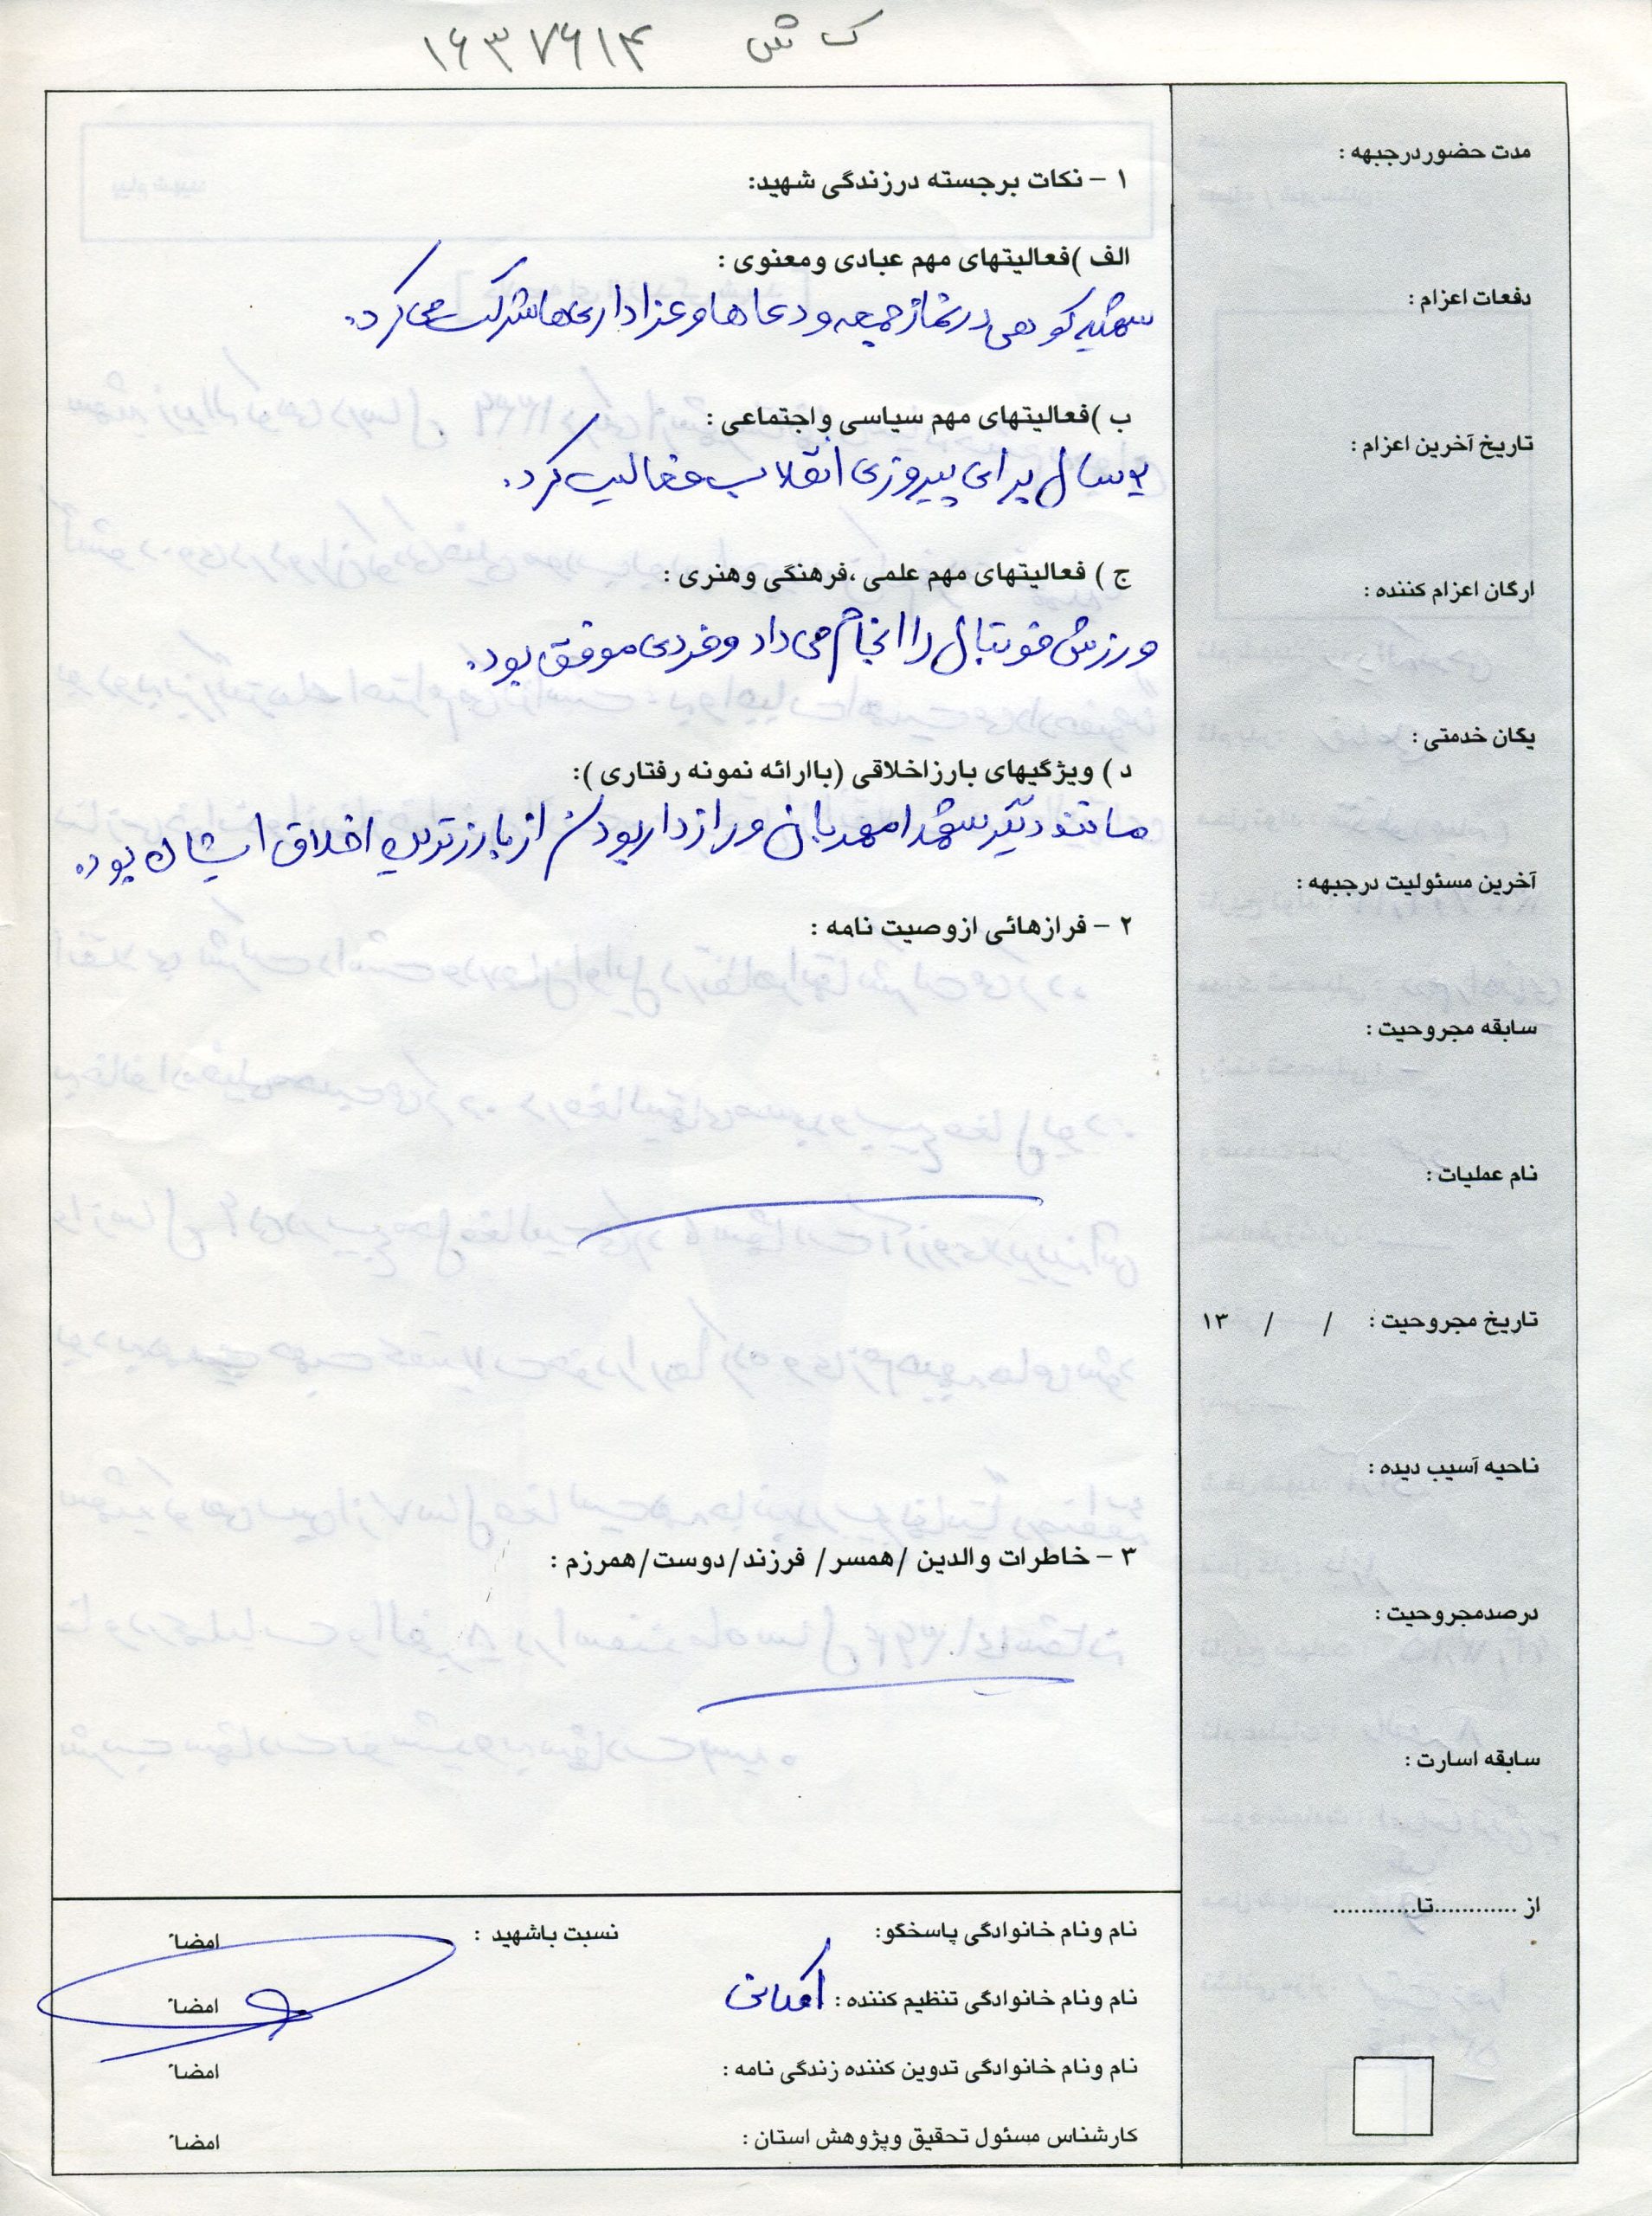 ک ش ۱۶۳۷۶۱۴
۱ - نکات برجسته درزندگی شهید:
الف )فعالیتهای مهم عبادی ومعنوی :
شهید کوهی در نماز جمعه و دعاها و عزاداری ها شرکت می کرد.
ب )فعالیتهای مهم سیاسی و اجتماعی :
سال برای پیروزی انقلاب فعالیت کرد.
ج ) فعالیتهای مهم علمی ،فرهنگی وهنری :
ورزش فوتبال را انجام می داد و فردی موفق بود.
د ) ویژگیهای بارزاخلاقی (باارائه نمونه رفتاری ):
مانند دیگر شهدا مهربان و رازدار بودن از بارزترین اخلاق ایشان بود.
۲ - فرازهائی ازوصیت نامه :
۳ - خاطرات والدین /همسر/ فرزند/دوست/همرزم :
نام ونام خانوادگی پاسخگو: نسبت باشهید : امضاً
نام ونام خانوادگی تنظیم کننده : امضاً
نام ونام خانوادگی تدوین کننده زندگی نامه : امضاً
کارشناس مسئول تحقیق وپژوهش استان : امضاً
مدت حضوردرجبهه :
دفعات اعزام :
تاریخ آخرین اعزام :
ارگان اعزام کننده :
یگان خدمتی :
آخرین مسئولیت درجبهه :
سابقه مجروحیت :
نام عملیات :
تاریخ مجروحیت : / / ۱۳
ناحیه آسیب دیده :
درصدمجروحیت :
سابقه اسارت :
از ............تا............